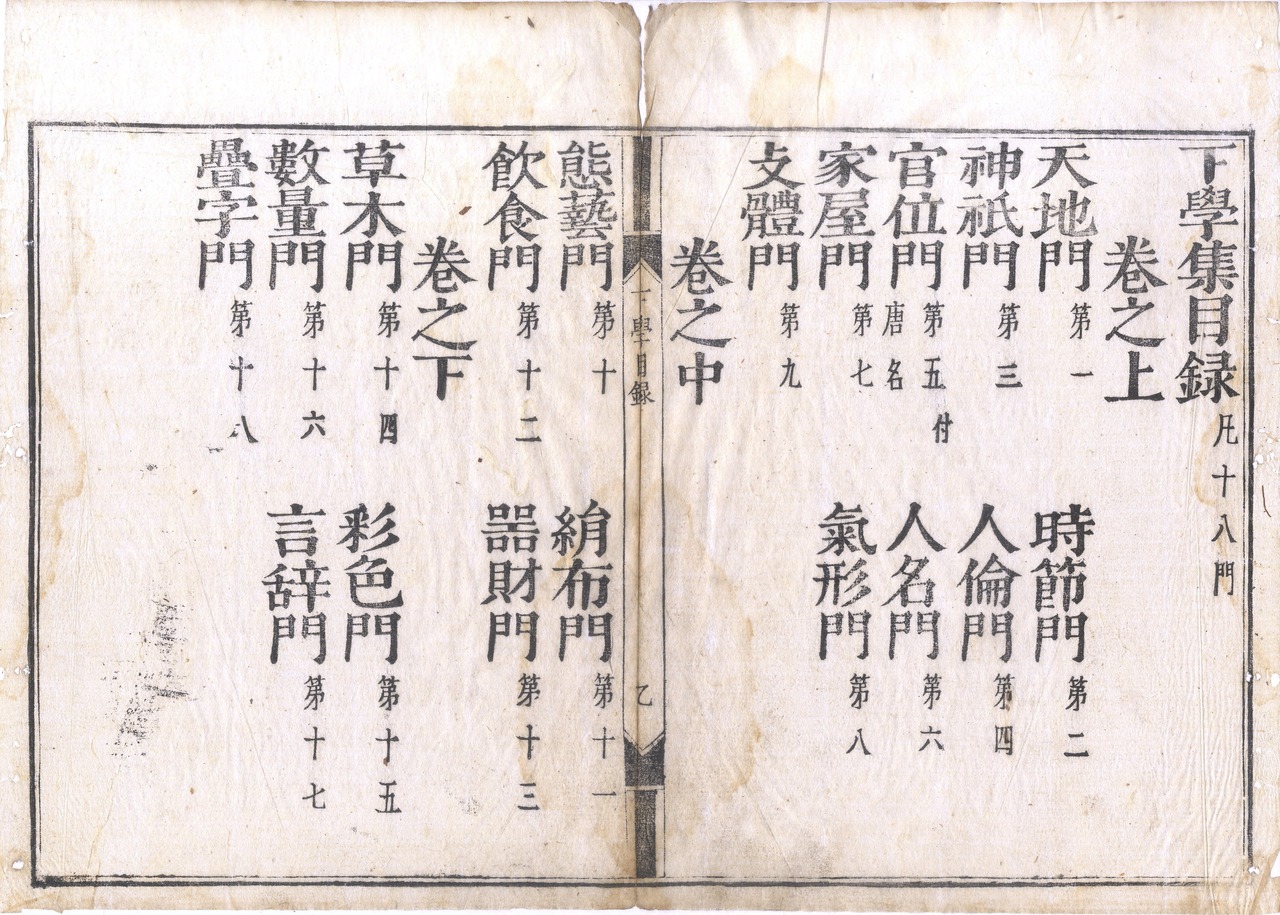 下學集目録 凡十八門
卷之上
天地門 第一 時節門 第二
神祇門 第三 人倫門 第四
官位門 第五 唐名付 人名門 第六
家屋門 第七 氣形門 第八
支體門 第九
卷之中
下學目録 乙
態藝門 第十 絹布門 第十一
飲食門 第十二 器財門 第十三
卷之下
草木門 第十四 彩色門 第十五
數量門 第十六 言辞門 第十七
疊字門 第十八